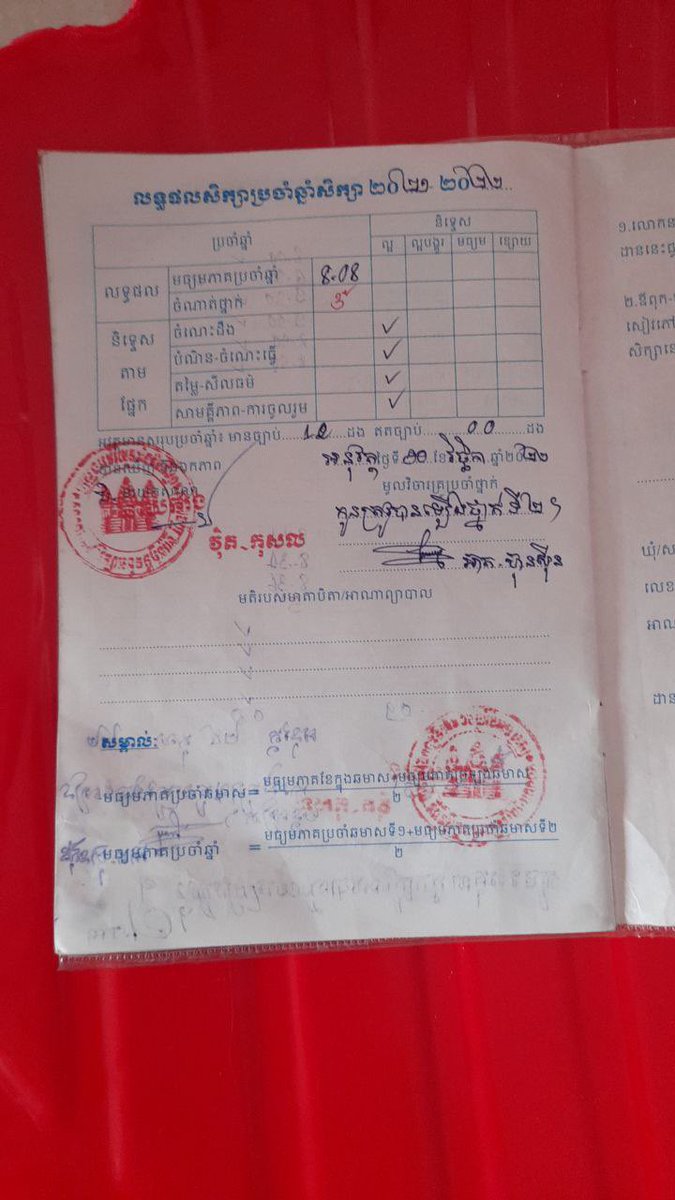 លទ្ធផលសិក្សាប្រចាំឆ្នាំសិក្សា ២០២១-២០២២
ប្រចាំឆ្នាំ
និទ្ទេស
ល្អ ល្អបង្គួរ មធ្យម ខ្សោយ
លទ្ធផល
មធ្យមភាគប្រចាំឆ្នាំ 8.08
ចំណាត់ថ្នាក់ 3
និទ្ទេស
តាម
ផ្នែក
ចំណេះដឹង ✓
បំណិន-ចំណេះធ្វើ ✓
តម្លៃ-សីលធម៌ ✓
សាមគ្គីភាព-ការចូលរួម ✓
អវត្តមានសរុបប្រចាំឆ្នាំ៖ មានច្បាប់ 12 ដង ឥតច្បាប់ 00 ដង
អនុវត្ត ថ្ងៃទី ១០ ខែ វិច្ឆិកា ឆ្នាំ២០២២
មូលវិចារគ្រូប្រចាំថ្នាក់
កូនត្រូវបានឡើងថ្នាក់ទី២។
វុិត.កុសល
មតិរបស់មាតាបិតា/អាណាព្យាបាល
សម្គាល់:
មធ្យមភាគប្រចាំឆមាស= មធ្យមភាគខែក្នុងឆមាស+
២
មធ្យមភាគប្រចាំឆ្នាំ = មធ្យមភាគប្រចាំឆមាសទី១+មធ្យមភាគប្រចាំឆមាសទី២
២
១.លោក
ដាននេះ
២.ឪពុក-
សៀវភៅ
សិក្សា
ឃុំ/ស
លេខ
អាណ
ដាន